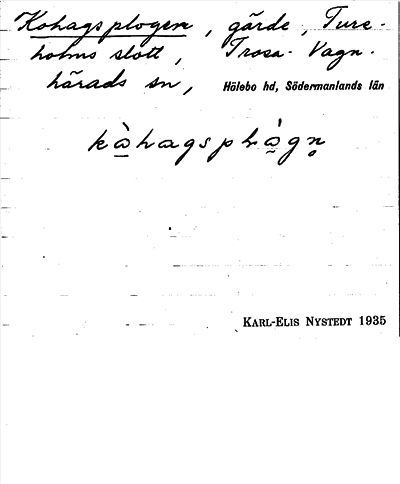 Kohagsplogen, gärde, Ture-
holms slott, Trosa-Vagn-
härads sn, Hölebo hd, Södermanlands län
kàhagsplàgn̥
KARL-ELIS NYSTEDT 1935